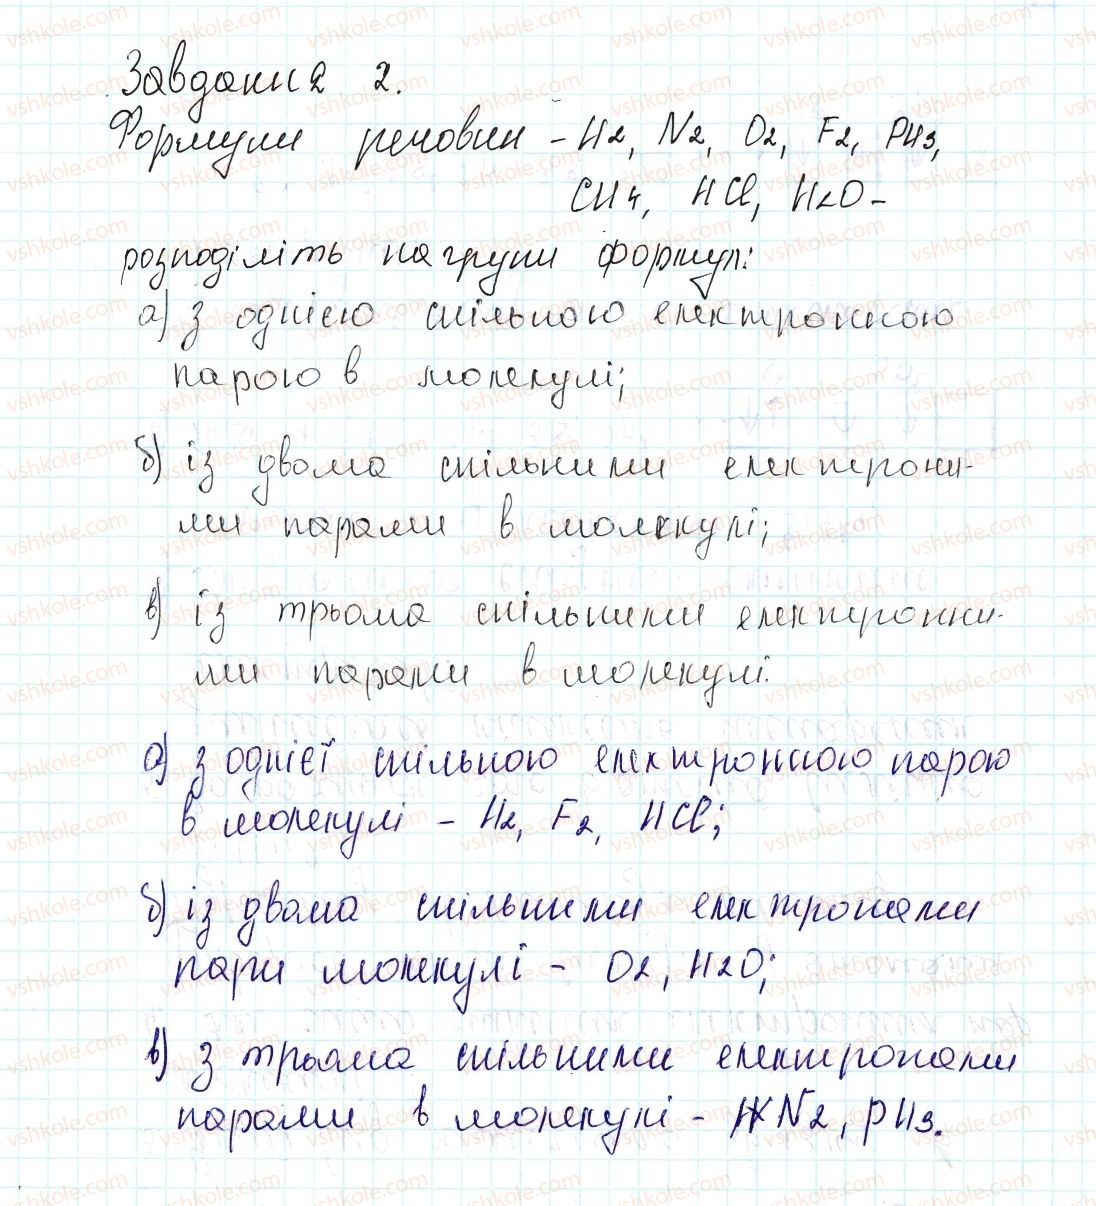 Завдання 2.
Формули речовин - H2, N2, O2, F2, PH3,
CH4, HCl, H2O -
розподіліть на групи формул:
а) з однією спільною електронною
парою в молекулі;
б) із двома спільними електрони-
ми парами в молекулі;
в) із трьома спільними електронни-
ми парами в молекулі.
а) з однієї спільною електронною парою
в молекулі - H2, F2, HCl;
б) із двома спільними електронами
пари молекулі - O2, H2O;
в) з трьома спільними електронами
парами в молекулі - N2, PH3.